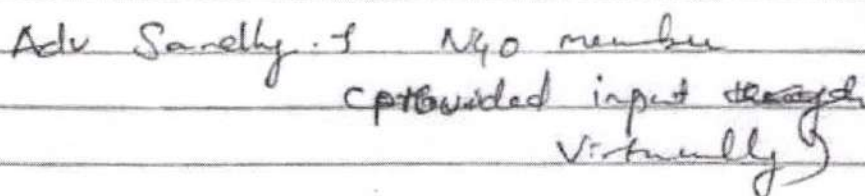 Adv Sandhy. S NGO member
(provided input
Virtually)